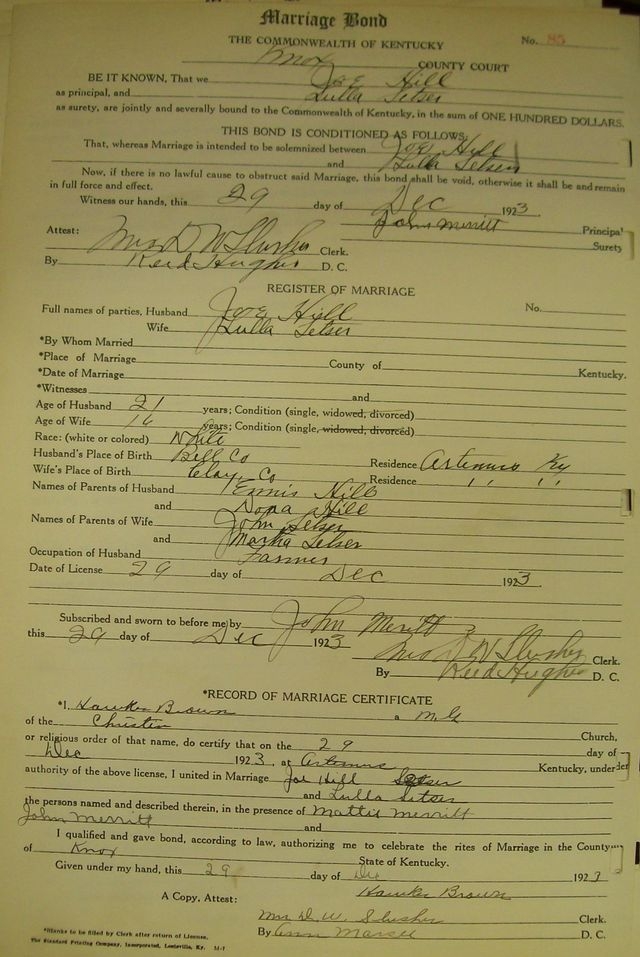 Marriage Bond
THE COMMONWEALTH OF KENTUCKY No. 85
Knox COUNTY COURT
BE IT KNOWN, That we Joe Hill
as principal, and Lulla Setser
as surety, are jointly and severally bound to the Commonwealth of Kentucky, in the sum of ONE HUNDRED DOLLARS.
THIS BOND IS CONDITIONED AS FOLLOWS:
That, whereas Marriage is intended to be solemnized between Joe Hill
and Lulla Setser
Now, if there is no lawful cause to obstruct said Marriage, this bond shall be void, otherwise it shall be and remain
in full force and effect.
Witness our hands, this 29 day of Dec 1923.
John Merritt Principal
Attest: Mrs D W Slusher Clerk. Surety
By Reed Hughes D. C.
REGISTER OF MARRIAGE
Full names of parties, Husband Joe Hill No.
Wife Lulla Setser
*By Whom Married
*Place of Marriage County of Kentucky.
*Date of Marriage
*Witnesses and
Age of Husband 21 years; Condition (single, widowed, divorced)
Age of Wife 16 years; Condition (single, widowed, divorced)
Race: (white or colored) White
Husband's Place of Birth Bell Co Residence Artemus Ky
Wife's Place of Birth Clay Co Residence " "
Names of Parents of Husband Ennis Hill
and Dora Hill
Names of Parents of Wife John Setser
and Martha Setser
Occupation of Husband Farmer
Date of License 29 day of Dec 1923
Subscribed and sworn to before me by John Merritt
this 29 day of Dec 1923
Mrs D W Slusher Clerk.
By Reed Hughes D. C.
*RECORD OF MARRIAGE CERTIFICATE
*I, Hawker Brown a M.G
of the Christin Church,
or religious order of that name, do certify that on the 29 day of
Dec 1923, at Artemus Kentucky, under
authority of the above license, I united in Marriage Joe Hill
and Lulla Setser
the persons named and described therein, in the presence of Mattie Merritt
John Merritt and
I qualified and gave bond, according to law, authorizing me to celebrate the rites of Marriage in the County
of Knox State of Kentucky.
Given under my hand, this 29 day of Dec 1923
Hawker Brown
A Copy, Attest:
Mrs D. W. Slusher Clerk.
By Ann D. C.
*Blanks to be filled by Clerk after return of License.
The Standard Printing Company, Incorporated, Louisville, Ky. M-7